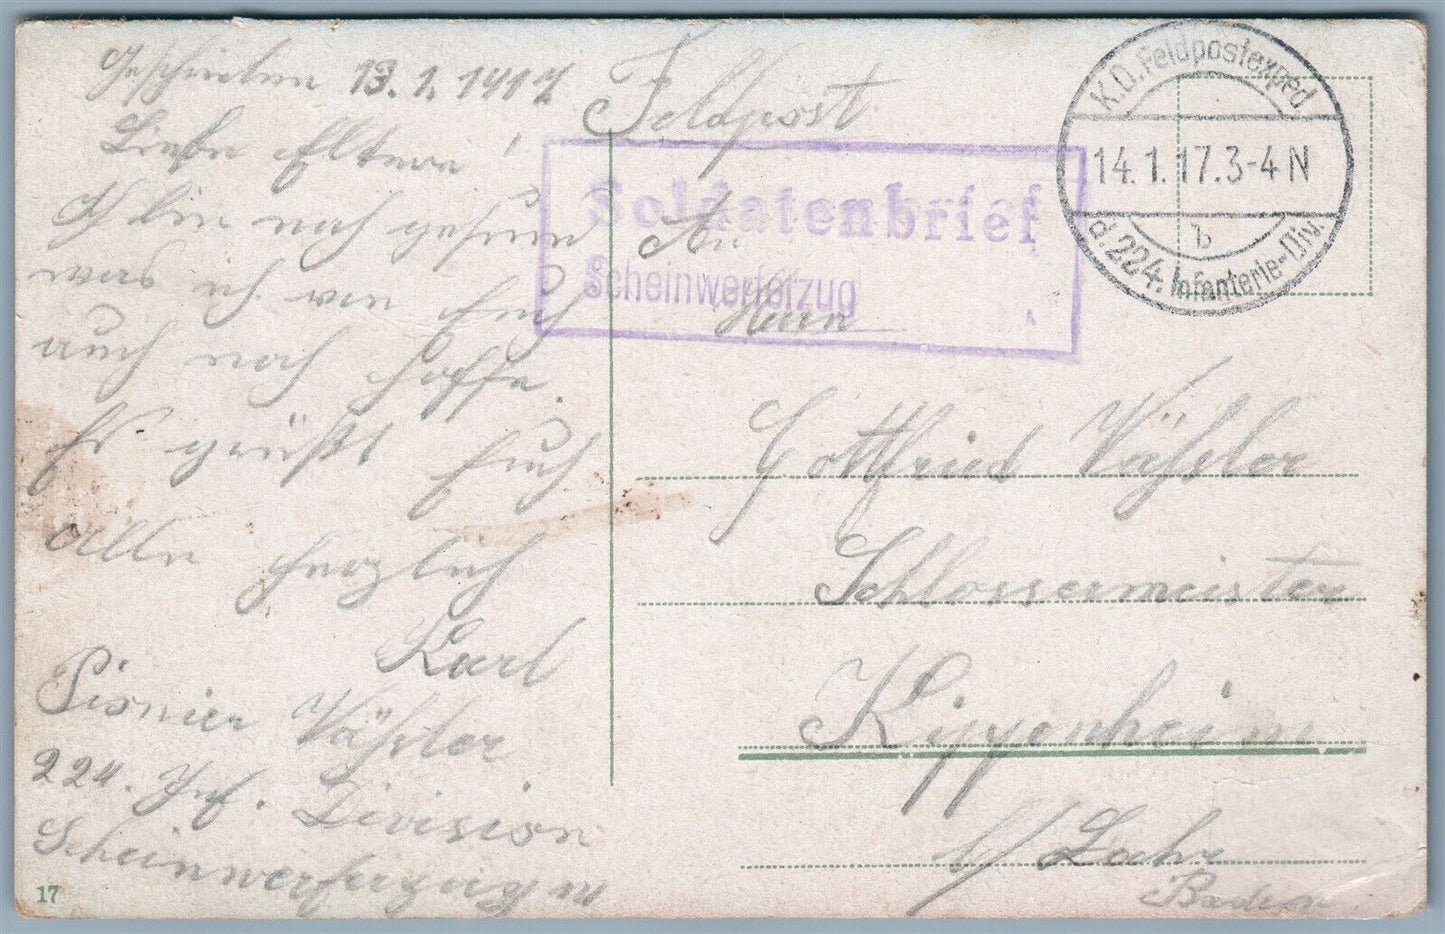 Geschrieben 13.1.1917
Liebe Eltern!
Ich bin noch gesund
was ich von Euch
auch noch hoffe.
Es grüßt Euch
alle herzlich
Karl
Pionier Väßler
224. Inf. Division
Scheinwerferzug
17
Feldpost
Soldatenbrief
Scheinwerferzug
An
Herrn
Gottfried Väßler
Schlossermeister
Kippenheim
b/ Lahr
Baden
K.D. Feldpostexped
14.1.17.3-4N
b
d. 224. Infanterie-Div.